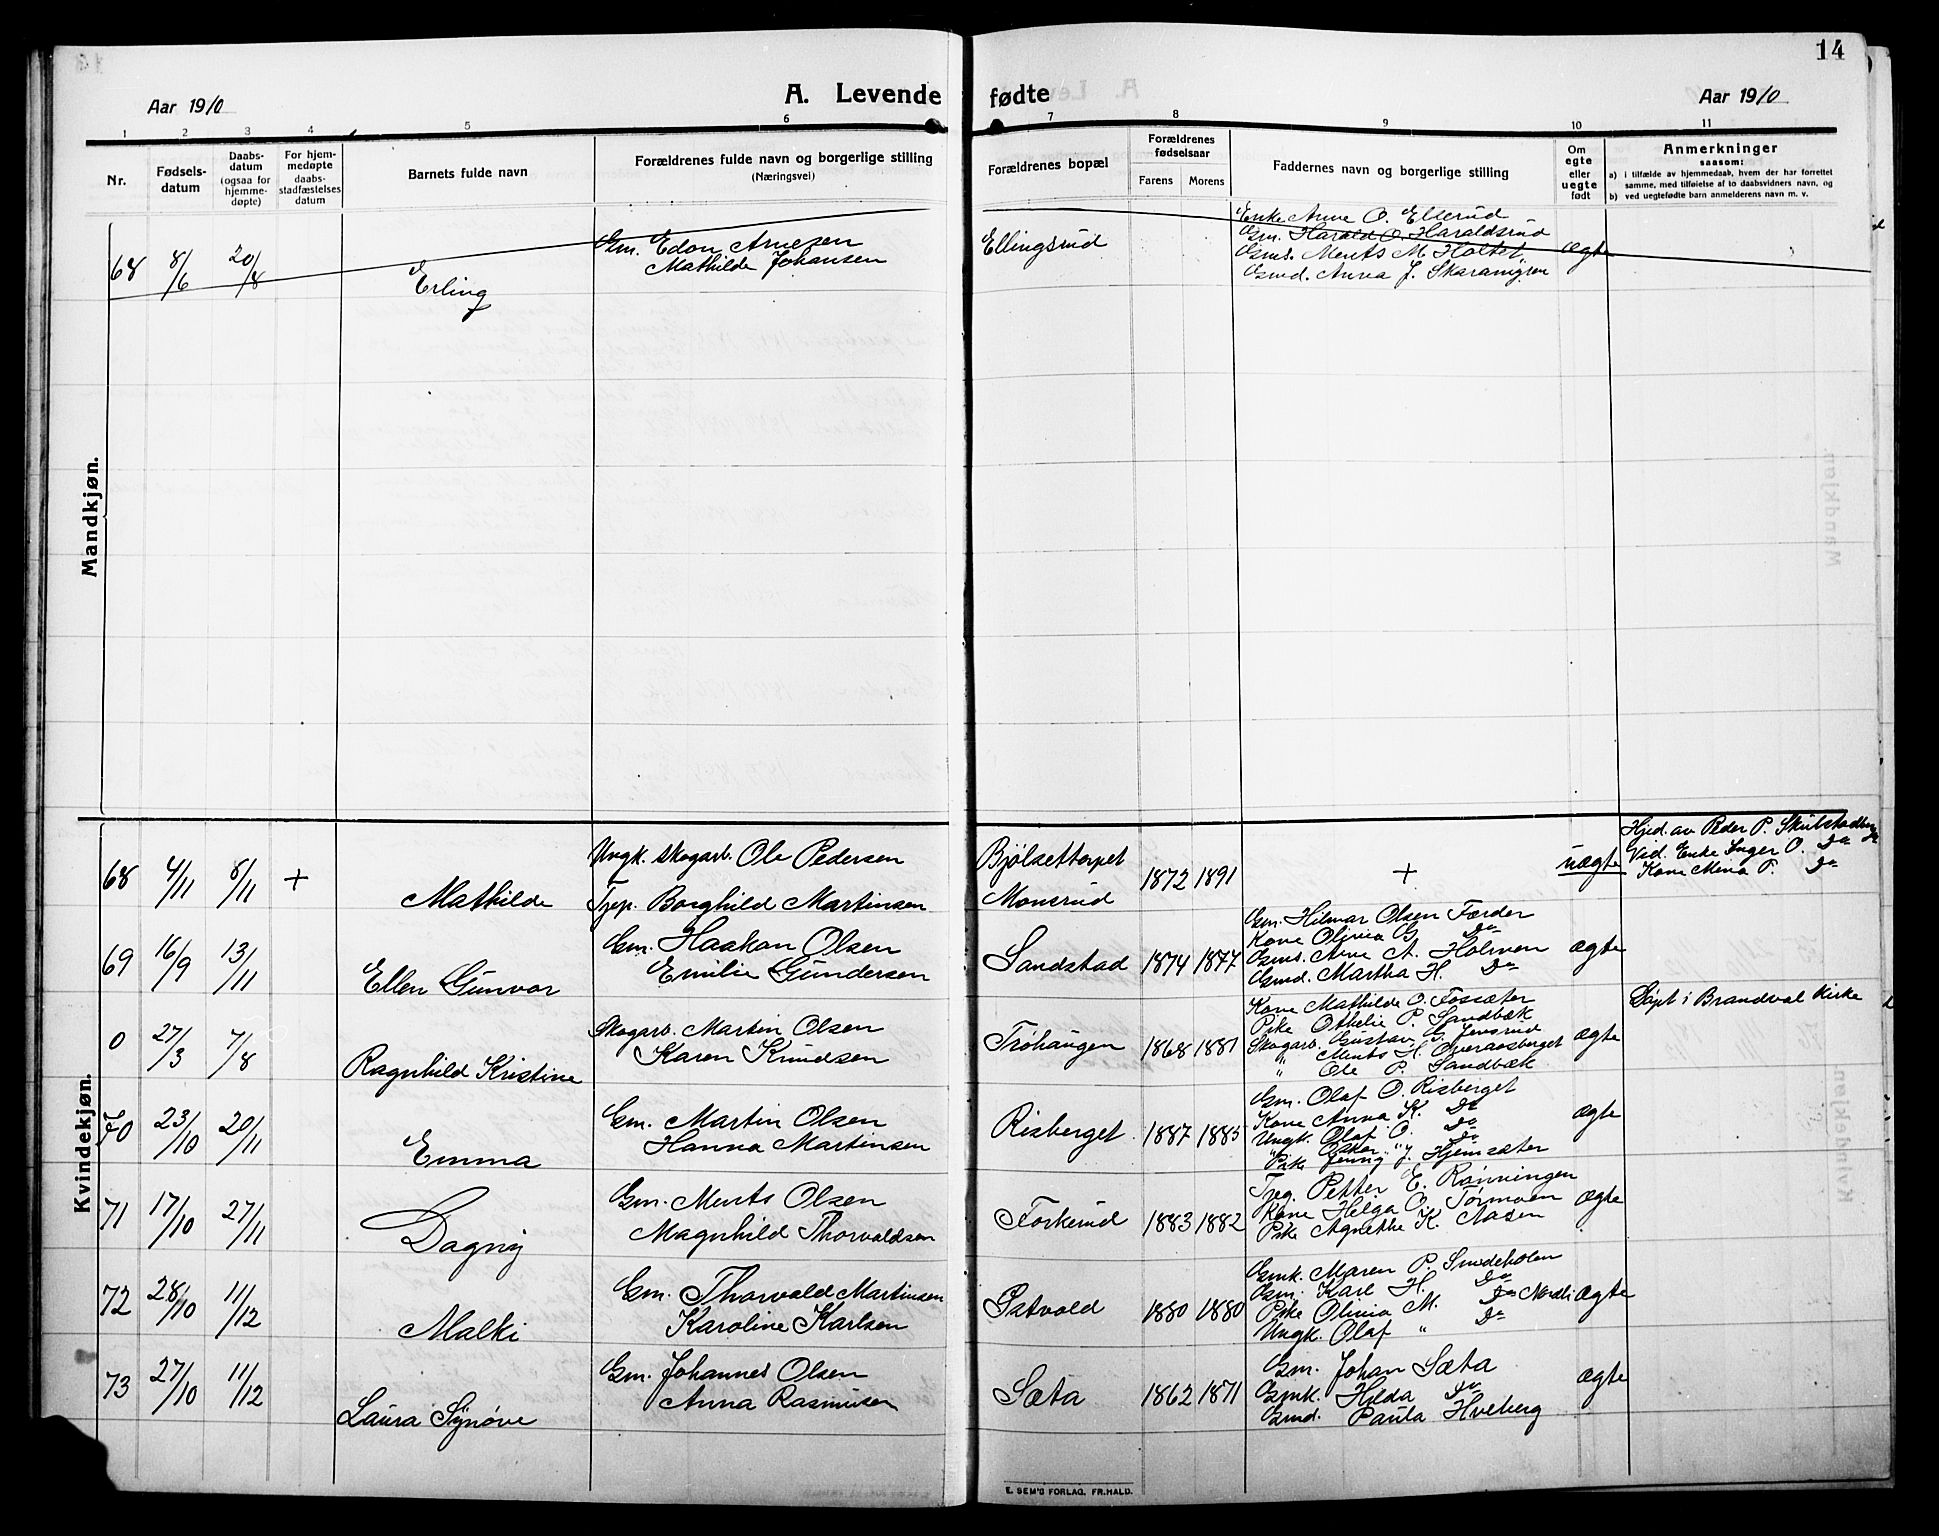 14
Aar 1910
A. Levende fødte
Aar 1910
1 2 3 4 5 6 7 8 9 10 11
Nr.
Fødsels-
datum
Daabs-
datum
(ogsaa for
hjemme-
døpte)
For hjem-
medøpte
daabs-
stadfæstelses
datum
Barnets fulde navn
Forældrenes fulde navn og borgerlige stilling
(Næringsvei)
Forældrenes bopæl
Forældrenes
fødselsaar
Farens Morens
Faddernes navn og borgerlige stilling
Om
egte
eller
uegte
født
Anmerkninger
saasom:
a) i tilfælde av hjemmedaab, hvem der har forrettet
samme, med tilføielse af to daabsvidners navn, og
b) ved uegtefødte barn anmelderens navn m. v.
Mandkjøn.
68 8/6 20/8 Erling
Gm. Edon Arnesen
Mathilde Johansen
Ellingsrud
Enke Anne O. Ellerud
Gm. Harald O. Haraldsrud
Gms. Ments M. Holter
Gmd. Anna J.
Ægte
Kvindekjøn.
68 4/11 8/11 + Mathilde
Ungk. skogarb. Ole Pedersen
Tjep. Borghild Martinsen
Bjølsettorpet
Monsrud
1872 1891
+
uægte
Hjed. av Peder P.
Vid. Enke Inger O. Do
Kone Mina P. Do
69 16/9 13/11 Ellen Gunvor
Gm. Haakon Olsen
Emilie Gundersen
Sandstad
1874 1877
Gm. Hilmar Olsen Færder
Kone Oljnia G. Do
Gms. Arne A. Holmen
Gmd. Martha H. Do
Ægte
0 27/3 7/8 Ragnhild Kristine
Skogarb. Martin Olsen
Karen Knudsen
Trøhaugen
1868 1881
Kone Mathilde O. Fossæter
Pike Othelie P. Sandbæk
Skogarb. Gustav G. Jensrud
" Ments H. Overaasberget
" Ole P. Sandbæk
Ægte
Døpt i Brandval Kirke
70 23/10 20/11 Emma
Gm. Martin Olsen
Hanna Martinsen
Risberget
1887 1885
Gm. Olaf O. Risberget
Kone Anna K. Do
Ungk. Olaf O. Do
" Oskar " "
Pike Jenny J. Hjemsæter
Ægte
71 17/10 27/11 Dagny
Gm. Ments Olsen
Magnhild Thorvaldsen
Forkerud
1883 1882
Tjeg. Petter E. Rønningen
Kone Helga O. Tørmoen
Pike Agnethe K. Aasen
Ægte
72 28/10 11/12 Malki
Gm. Thorvald Martinsen
Karoline Karlsen
Satvold
1880 1880
Gmk. Maren P. Smedeholen
Gm. Karl H. Do
Pike Olivia M. Do Nordli
Ungk. Olaf " Do
Ægte
73 27/10 11/12 Laura Synøve
Gm. Johannes Olsen
Anna Rasmusen
Sæta
1862 1871
Gm. Johan Sæta
Gmk. Hilda Do
Gmd. Paula Hveberg
Ægte
E. SEM'S FORLAG. FR.HALD.